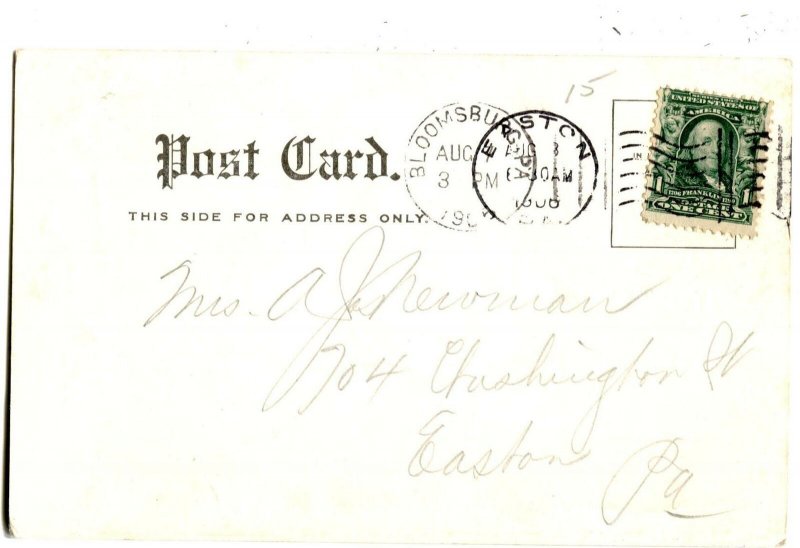 15
Post Card.
THIS SIDE FOR ADDRESS ONLY.
BLOOMSBURG PA
AUG
3 PM
EASTON
AUG 3
30AM
1906
PA.
UNITED STATES OF
AMERICA
1 FRANKLIN 1
ONE CENT
Mrs. A J Newman
704 Washington St
Easton Pa